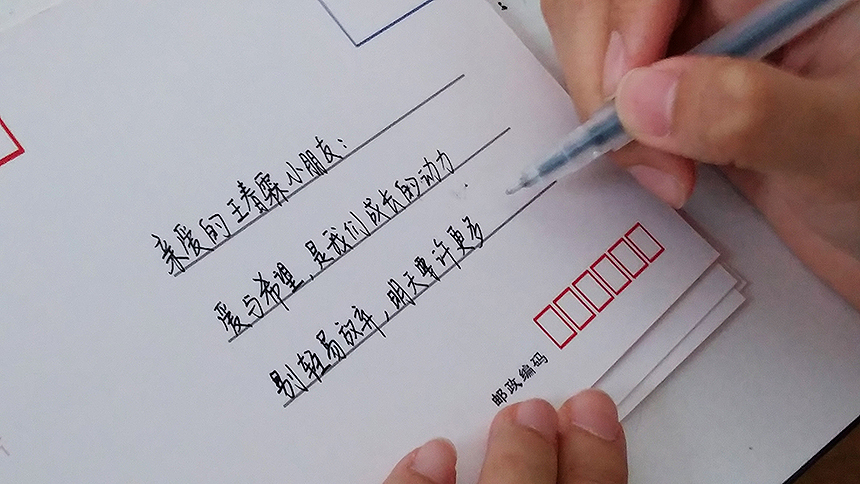 亲爱的王春霖小朋友：
爱与希望，是我们成长的动力
别轻易放弃，明天要许更多
邮政编码